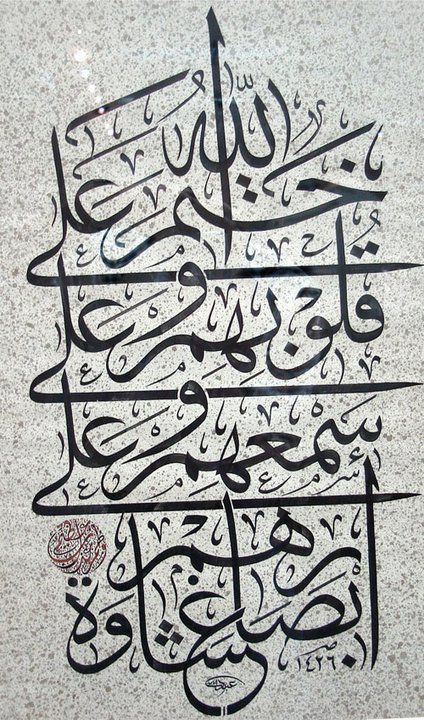 ختم الله على
قلوبهم وعلى
سمعهم وعلى
أبصارهم
غشاوة
١٤٢٦